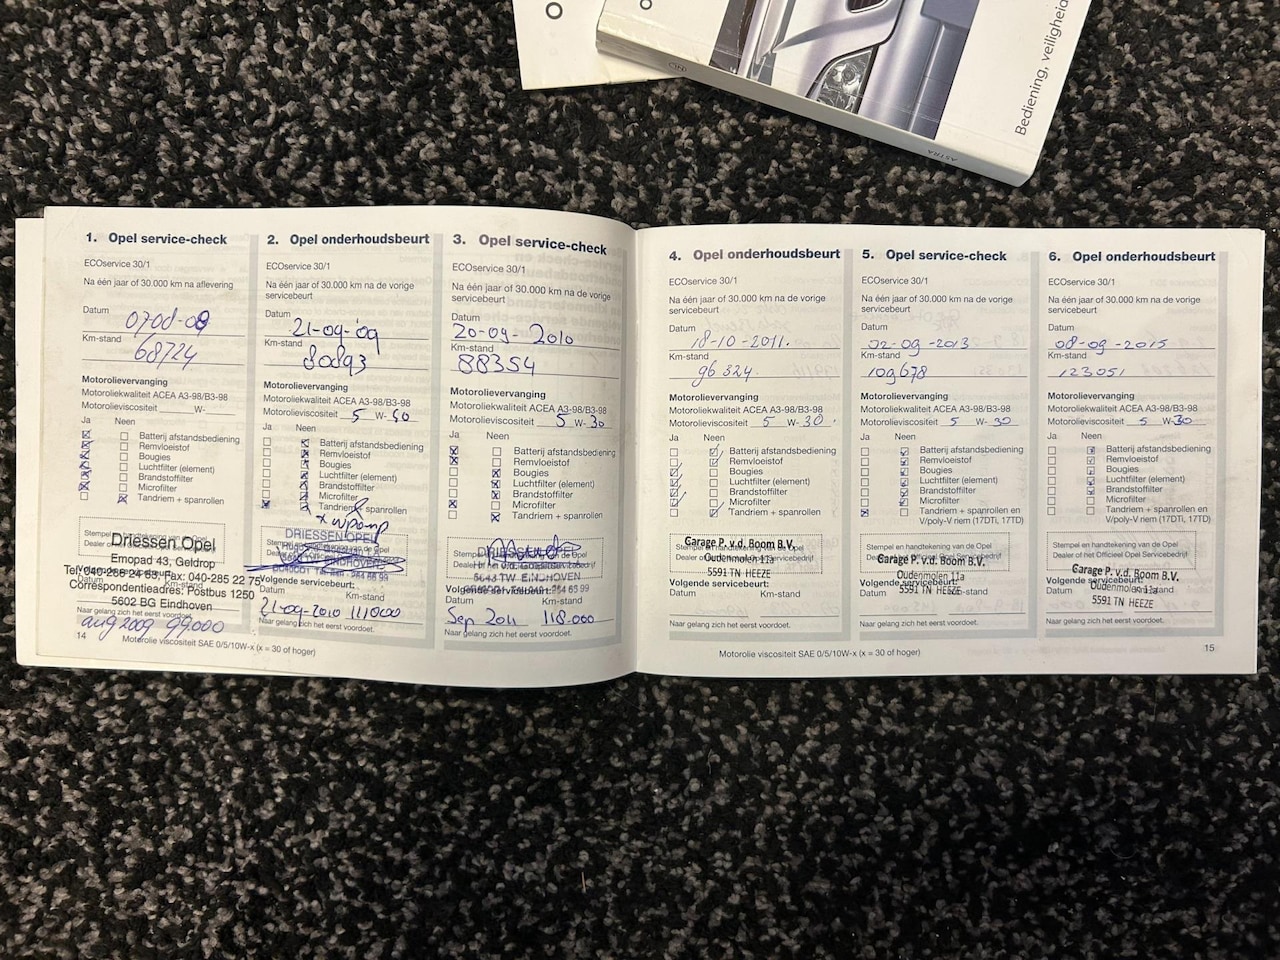 Bediening, veiligheid
ASTRA
1. Opel service-check
ECOservice 30/1
Na één jaar of 30.000 km na aflevering
Datum
07-08-08
Km-stand
68724
Motorolievervanging
Motoroliekwaliteit ACEA A3-98/B3-98
Motorolieviscositeit W-
Ja Neen
Batterij afstandsbediening
Remvloeistof
Bougies
Luchtfilter (element)
Brandstoffilter
Microfilter
Tandriem + spanrollen
Driessen Opel
Emopad 43, Geldrop
Tel. 040-286 24 63, Fax: 040-285 22 75
Correspondentieadres: Postbus 1250
5602 BG Eindhoven
Naar gelang zich het eerst voordoet.
aug 2009 99.000
14
2. Opel onderhoudsbeurt
ECOservice 30/1
Na één jaar of 30.000 km na de vorige
servicebeurt
Datum
21-09-'09
Km-stand
80893
Motorolievervanging
Motoroliekwaliteit ACEA A3-98/B3-98
Motorolieviscositeit 5 W-
Ja Neen
Batterij afstandsbediening
Remvloeistof
Bougies
Luchtfilter (element)
Brandstoffilter
Microfilter
Tandriem + spanrollen
+ w.pomp
DRIESSEN OPEL
Volgende servicebeurt:
Datum Km-stand
21-09-2010 111000
Naar gelang zich het eerst voordoet.
3. Opel service-check
ECOservice 30/1
Na één jaar of 30.000 km na de vorige
servicebeurt
Datum
20-09-2010
Km-stand
88354
Motorolievervanging
Motoroliekwaliteit ACEA A3-98/B3-98
Motorolieviscositeit 5 W-30
Ja Neen
Batterij afstandsbediening
Remvloeistof
Bougies
Luchtfilter (element)
Brandstoffilter
Microfilter
Tandriem + spanrollen
DRIESSEN OPEL
5643 TW EINDHOVEN
Volgende servicebeurt:
Datum Km-stand
Sep 2011 118.000
Naar gelang zich het eerst voordoet.
Motorolie viscositeit SAE 0/5/10W-x (x = 30 of hoger)
4. Opel onderhoudsbeurt
ECOservice 30/1
Na één jaar of 30.000 km na de vorige
servicebeurt
Datum
18-10-2011.
Km-stand
96324.
Motorolievervanging
Motoroliekwaliteit ACEA A3-98/B3-98
Motorolieviscositeit 5 W-30.
Ja Neen
Batterij afstandsbediening
Remvloeistof
Bougies
Luchtfilter (element)
Brandstoffilter
Microfilter
Tandriem + spanrollen
Garage P. v.d. Boom B.V.
Oudenmolen 11a
5591 TN HEEZE
Volgende servicebeurt:
Datum Km-stand
Naar gelang zich het eerst voordoet.
5. Opel service-check
ECOservice 30/1
Na één jaar of 30.000 km na de vorige
servicebeurt
Datum
02-09-2013
Km-stand
109678
Motorolievervanging
Motoroliekwaliteit ACEA A3-98/B3-98
Motorolieviscositeit 5 W-30
Ja Neen
Batterij afstandsbediening
Remvloeistof
Bougies
Luchtfilter (element)
Brandstoffilter
Microfilter
Tandriem + spanrollen en
V/poly-V riem (17DTi, 17TD)
Stempel en handtekening van de Opel
Garage P. v.d. Boom B.V.
Oudenmolen 11a
5591 TN HEEZE
Volgende servicebeurt:
Datum Km-stand
Naar gelang zich het eerst voordoet.
6. Opel onderhoudsbeurt
ECOservice 30/1
Na één jaar of 30.000 km na de vorige
servicebeurt
Datum
08-09-2015
Km-stand
123051
Motorolievervanging
Motoroliekwaliteit ACEA A3-98/B3-98
Motorolieviscositeit 5 W-30
Ja Neen
Batterij afstandsbediening
Remvloeistof
Bougies
Luchtfilter (element)
Brandstoffilter
Microfilter
Tandriem + spanrollen en
V/poly-V riem (17DTi, 17TD)
Stempel en handtekening van de Opel
Dealer of het Officieel Opel Servicebedrijf
Garage P. v.d. Boom B.V.
Oudenmolen 11a
5591 TN HEEZE
Volgende servicebeurt:
Datum Km-stand
Naar gelang zich het eerst voordoet.
Motorolie viscositeit SAE 0/5/10W-x (x = 30 of hoger)
15